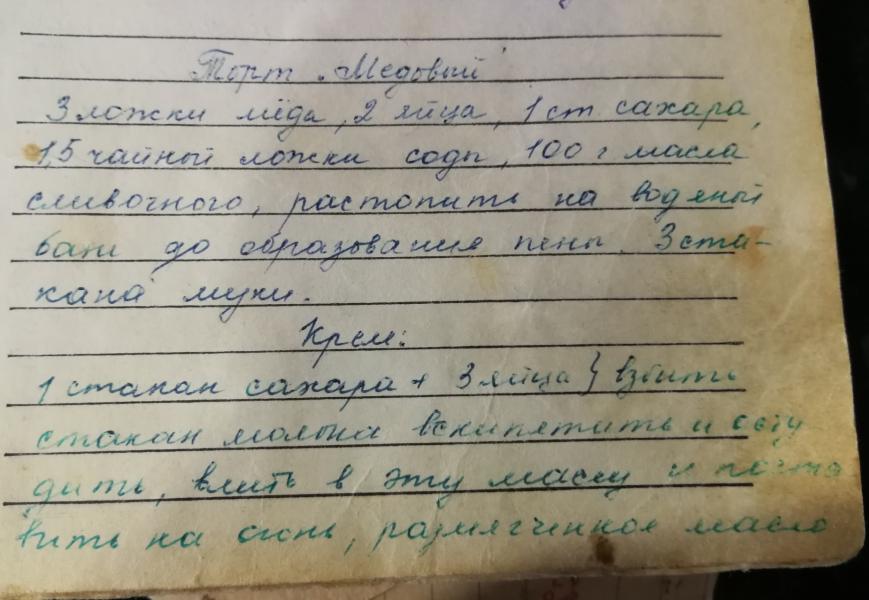 Торт „Медовый"
3 ложки мёда, 2 яйца, 1 ст сахара,
1,5 чайной ложки соды, 100 г масла
сливочного, растопить на водяный
бане до образования пены. 3 ста-
кана муки.
Крем:
1 стакан сахара + 3 яйца } взбить
стакан молока вскипятить и осту
дить, влить в эту массу и поста
вить на огонь, размягченное масло